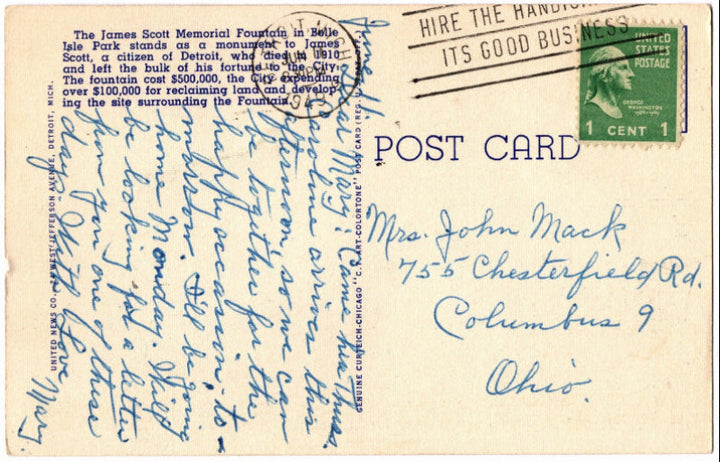 The James Scott Memorial Fountain in Belle
Isle Park stands as a monument to James
Scott, a citizen of Detroit, who died in 1910
and left the bulk of his fortune to the City.
The fountain cost $500,000, the City expending
over $100,000 for reclaiming land and develop-
ing the site surrounding the Fountain.
HIRE THE
ITS GOOD BUSINESS
UNITED
STATES
POSTAGE
GEORGE
WASHINGTON
1 CENT 1
POST CARD
Mrs. John Mack
755 Chesterfield Rd.
Columbus 9
Ohio.
June 11
Dear Mary: Came her Thurs.
Caroline arrives this
afternoon, so we can
be together for the
happy occasion to-
morrow. I'll be going
home Monday. Will
be looking for a letter
from you one of these
days. With Love
Mary.
UNITED NEWS CO., WEST JEFFERSON AVENUE, DETROIT, MICH.
GENUINE CURTEICH-CHICAGO "C.T. ART-COLORTONE" POST CARD (REG.